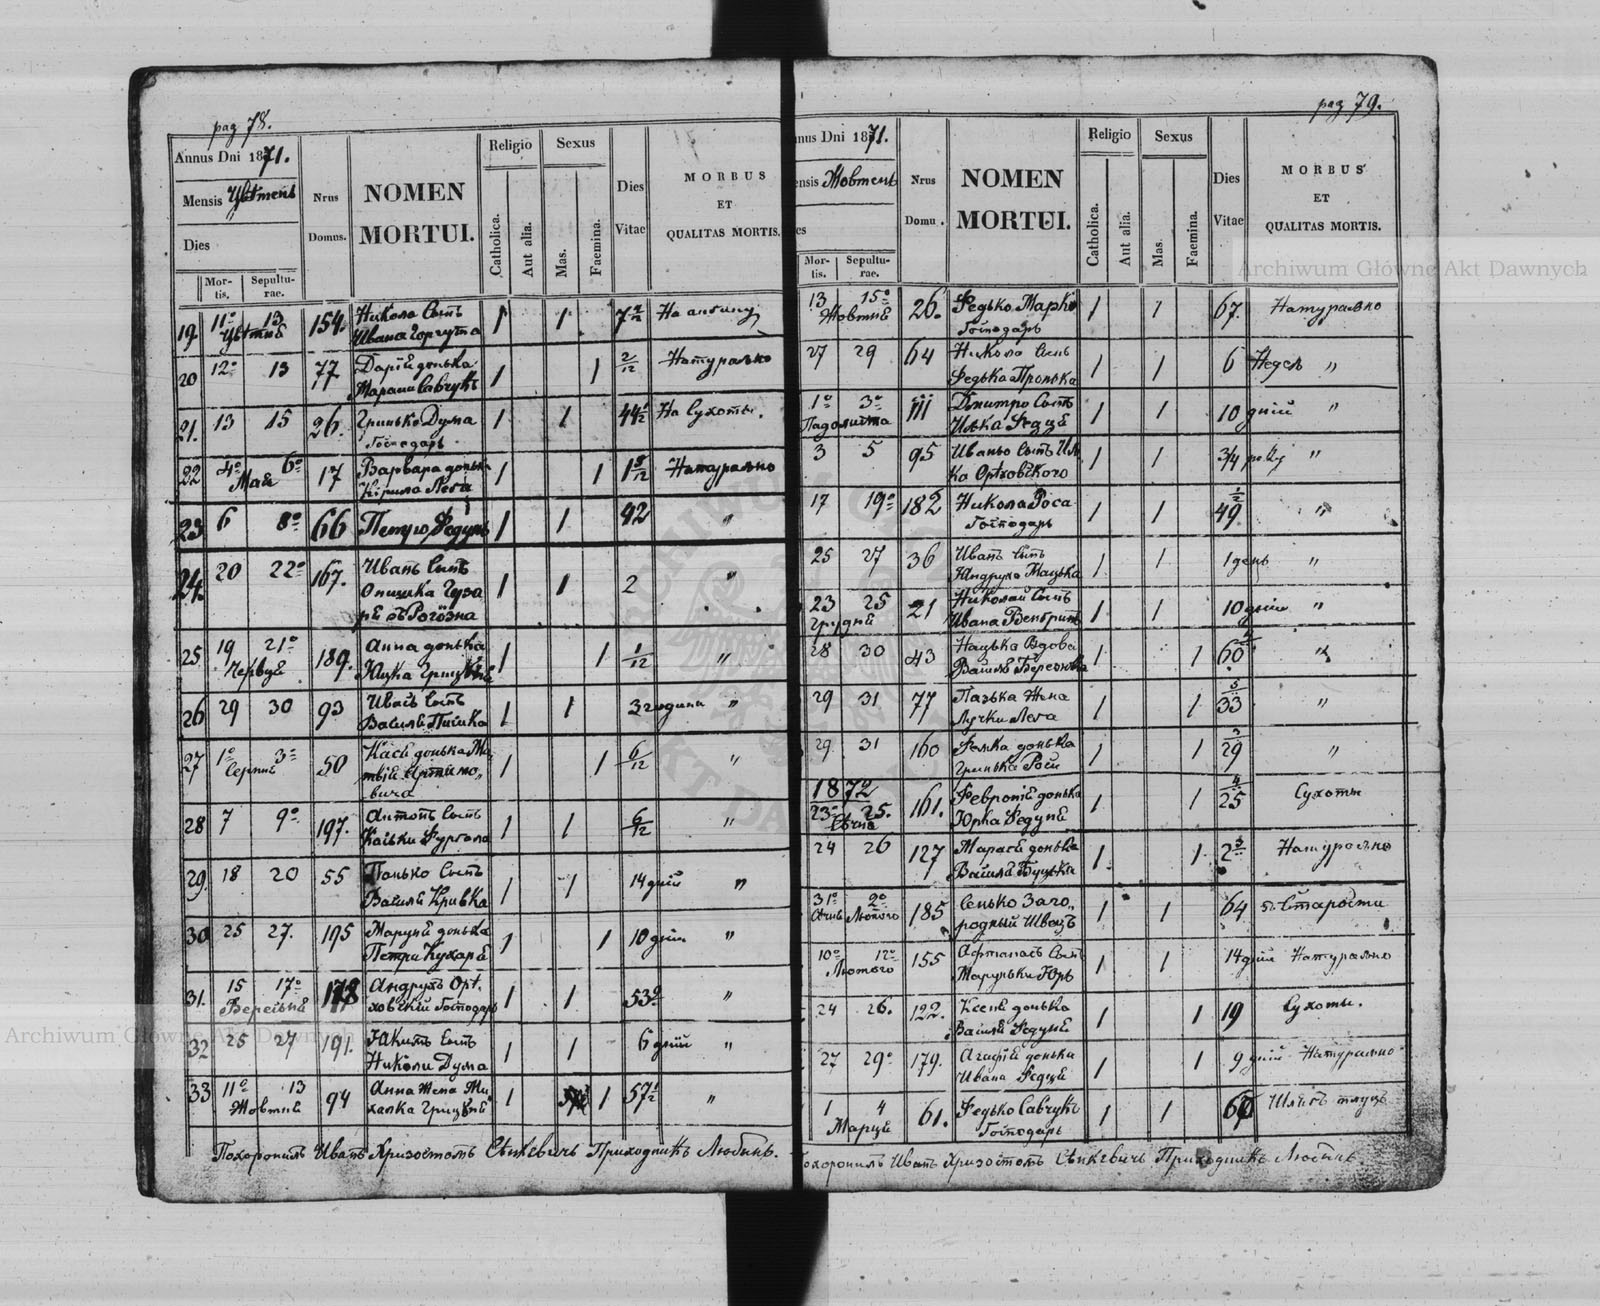 pag 78.
Annus Dni 1871.
Mensis Цвѣтень
Dies
Mortis. Sepulturae.
Nrus Domus.
NOMEN MORTUI.
Religio
Catholica. Aut alia.
Sexus
Mas. Faemina.
Dies Vitae
MORBUS
ET
QUALITAS MORTIS.
19. 11° 13 154. Никола Сынъ 1 1 7 2/12 На ангину
Цвѣтня Ивана Горгута
20 12° 13 77 Дарія донька 1 1 2/12 Натурально
Савчукъ
21. 13 15 26. Гринько Дума 1 1 44 1/2 На Сухоты.
Господарь
22 4° 6° 17 Варвара донька 1 1 1 8/12 Натурально
Мая Кирила Лега
23 6 8° 66 Петро Федунь 1 1 42 "
24. 20 22° 167. Иванъ Сынъ 1 1 2 "
Онишка
зъ Рогôзна
25 19 21° 189. Анна донька 1 1 1/12 "
Червця Юцка
26 29 30 93 Сынъ 1 1 3 години "
Василя Пишка
27 1° 3° 50 Кася донька Ма 1 1 6/12 "
Серпня твія Артимо„
вича
28 7 9° 197. Антонъ Сынъ 1 1 6/12 "
Каськи Фургала
29. 18 20 55 Панько Сынъ 1 1 14 дній "
Василя Кривка
30 25 27. 195 Маруня донька 1 1 10 дній "
Петра Кухара
31. 15 17° 178 Андрухъ Орѣ. 1 1 53 "
ховскій Господарь
32 25 27 191. Якимъ Сынъ 1 1 6 дній "
Николи Дума
33 11° 13 94 Анна Жена Ми 1 1 57 1/2 "
Жовтня халка
Похоронилъ Иванъ Хризостомъ Сѣнкевичъ Приходникъ Любинь.
pag 79.
Annus Dni 1871.
Mensis Жовтень
Dies
Mortis. Sepulturae.
Nrus Domu.
NOMEN MORTUI.
Religio
Catholica. Aut alia.
Sexus
Mas. Faemina.
Dies Vitae
MORBUS
ET
QUALITAS MORTIS.
13 15° 26. Федько Марко 1 1 67. Натурально
Жовтня Господарь
27 29 64 Никола Сынъ 1 1 6 Недѣль "
Федька Пронька
1° 3° 111 Дмитро Сынъ 1 1 10 дній "
Падолиста Илька
3 5 95 Иванъо Сынъ Иль 1 1 3/4 року "
ка Орѣховского
17 19° 182 Никола Роса 1 1 49 1/2 "
Господарь
25 27 36 Иванъ Сынъ 1 1 1 день "
Яндруха Мацька
23 25 21 Николай Сынъ 1 1 10 дній "
Грудня Ивана
28 30 43 Нацька Вдова 1 1 60 "
Василя
29 31 77 Пазька Жена 1 1 33 "
Луцки Лега
29. 31 160 донька 1 1 29 "
Гринька Роси
1872
23° 25. 161. Февронія донька 1 1 25 Сухоты
Сѣчня Юрка Федуня
24 26 127 Марася донька 1 1 2 3/12 Натурально
Василя Буцька
31° 2° 185 Сенько Заго„ 1 1 64 Старости
Лютого родный Швець
10° 12° 155 Афтанасъ Сынъ 1 1 14 дній Натурально
Лютого Маруньки Юръ
24 26. 122. Ксеня донька 1 1 19 Сухоты.
Василя Федуня
27 29° 179. Агафія донька 1 1 9 дній Натурально
Ивана
1 4 61. Федько Савчукъ 1 1
Марця Господарь
Похоронилъ Иванъ Хризостомъ Сѣнкевичъ Приходникъ Любинь
Archiwum Główne Akt Dawnych
Archiwum Główne Akt Dawnych